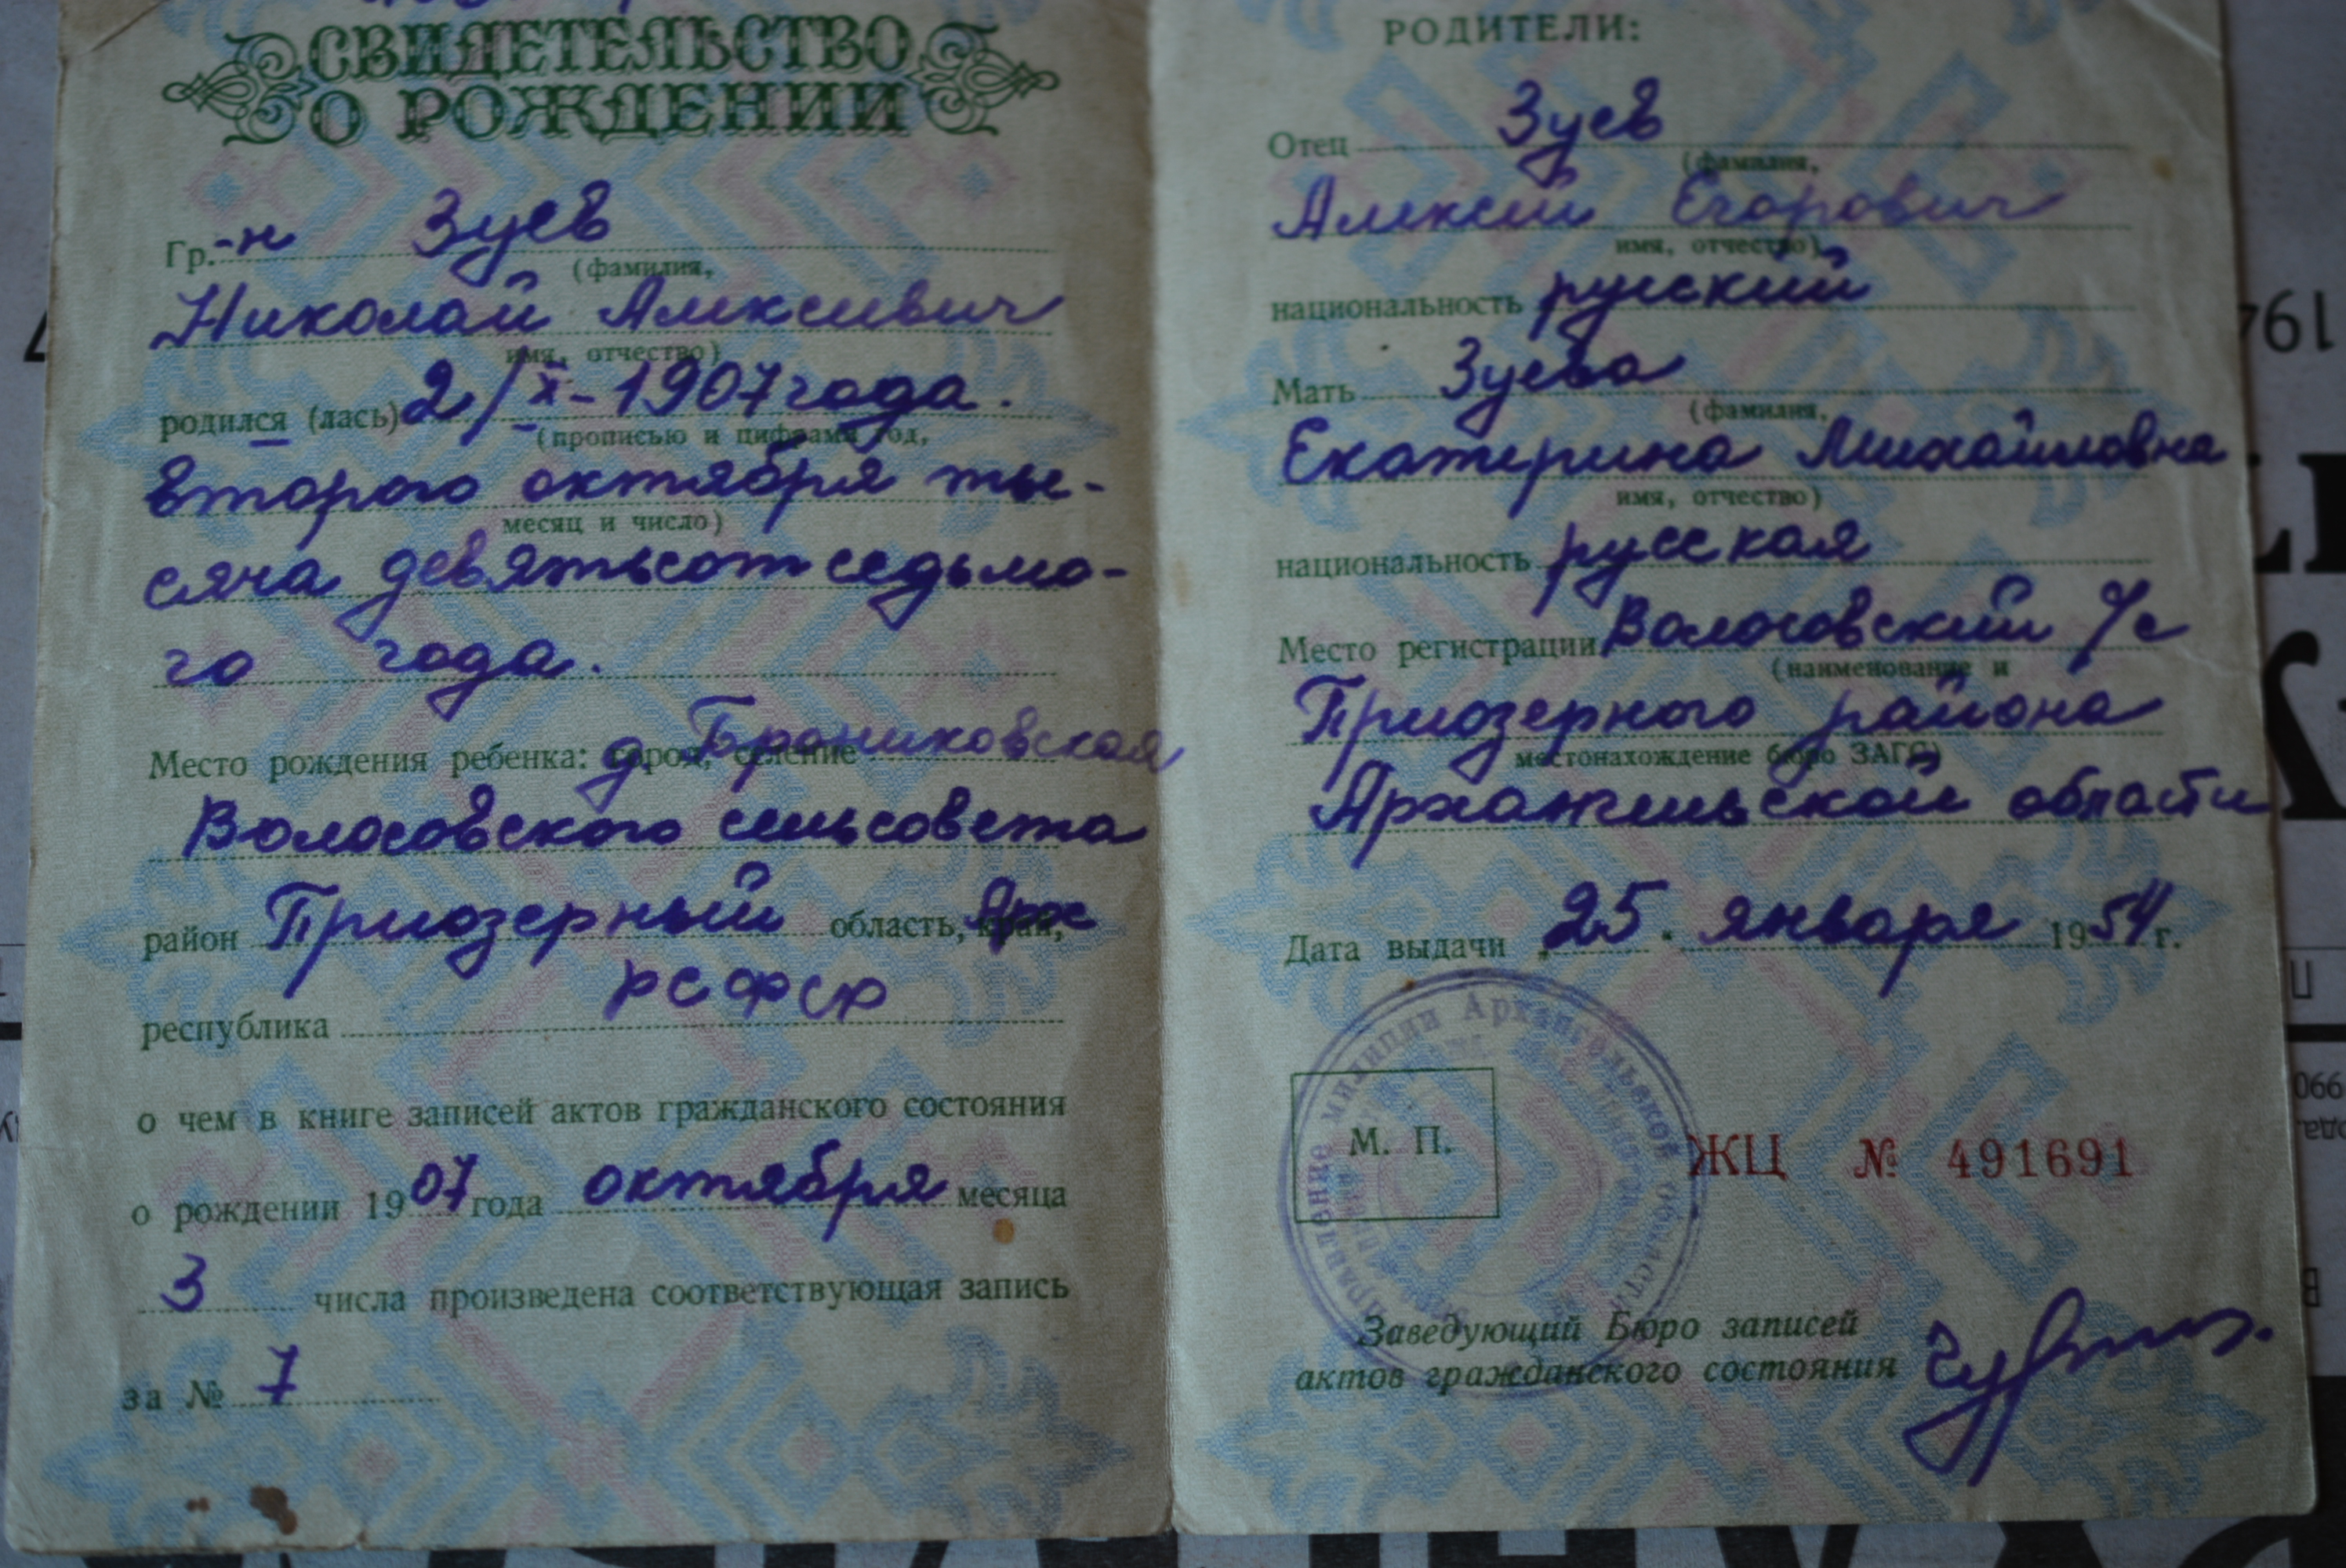 СВИДЕТЕЛЬСТВО
О РОЖДЕНИИ
Гр.-н Зуев
(фамилия,
Николай Алексеевич
имя, отчество)
родился (лась) 2/X-1907 года.
(прописью и цифрами год,
второго октября ты-
месяц и число)
сяча девятьсот седьмо-
го года.
Место рождения ребенка: город, селение д.
Волосовского сельсовета
район Приозерный область, край, Арх
республика РСФСР
о чем в книге записей актов гражданского состояния
о рождении 1907 года октября месяца
3 числа произведена соответствующая запись
за № 7
РОДИТЕЛИ:
Отец Зуев
(фамилия,
Алексей Егорович
имя, отчество)
национальность русский
Мать Зуева
(фамилия,
Екатерина Михайловна
имя, отчество)
национальность русская
Место регистрации Волосовский с/с
(наименование и
Приозерного района
местонахождение бюро ЗАГС)
Архангельской области
Дата выдачи „25" января 1954 г.
Управление милиции Архангельской области
М. П.
ЖЦ № 491691
Заведующий Бюро записей
актов гражданского состояния